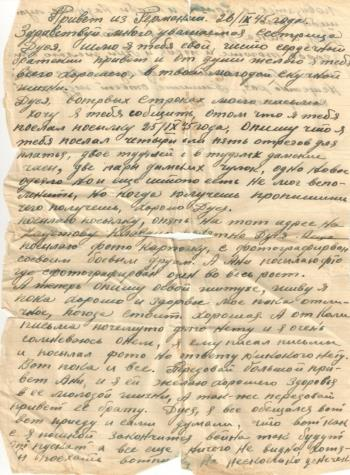 Привет из Германии. 26/IX 45 года.
Здравствуй много уважаемая сестрица
Дуся, шлю я тебе свой чисто сердечный
братский привет и от души желаю тебе
всего хорошего, в твоей молодой скучной
жизни.
Дуся, во первых строках моего письма
хочу я тебе сообщить, о том что я тебе
послал посылку 25/IX 45 года, опишу что я
тебе послал четыри или пять отрезов для
платья, двое туфлей, и туфли дамские
одни, две пары дамских чулок, одно
одеяло и ещё что то есть не мог вспо-
мнить, но когда получишь пропишишь
чего получишь. Хорошо Дуся.
посылаю посылку, опять на этот адрес на
Дуся
посылаю фото карточку, с фотографирован
со своим боевым другом. А Ани посылаю фо
то сфотографирован один во весь рост.
А теперь опишу о своей житухе, живу я
пока хорошо и здоров. все пока отли-
чное, погода стоит хорошая. А от Коли
письма почему то долго нету и я очень
сомневаюсь о нём, я ему писал письмы
и посылал фото но ответу никакого нету.
Вот пока и все. Передавай большой при-
вет Ани, и я ей желаю хорошего здоровья
в её молодой жизни, А так-же передавай
привет её брату. Дуся, я все обещался вот
вот приеду и сами думали, что вот как
с Японией закончится война так будут
от пускать а все ещё ничего не видно хотя-
бы поехать в отпуск на несколько денёчек